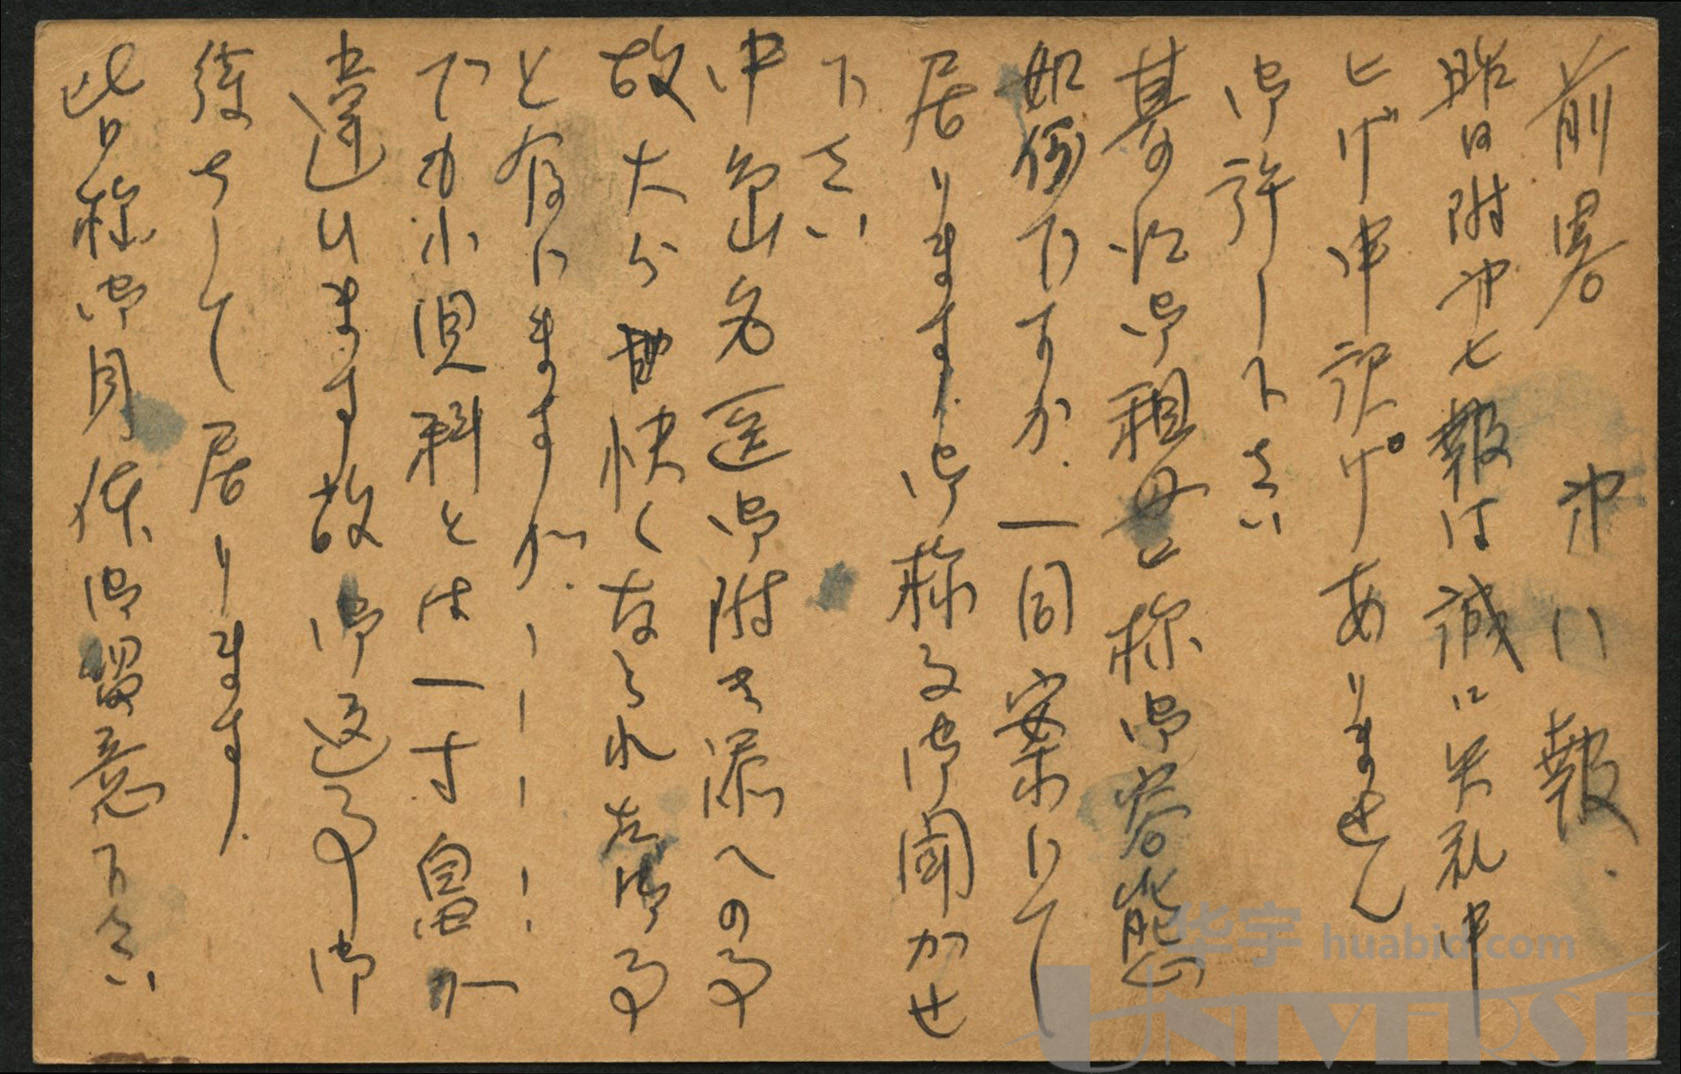 前畧 オ八報.
昨日附オ七報は誠に失礼申
上げ申訳けありません
御許し下さい
其の后御祖母様御容態
如何ですか.一同案じて
居ります.御様子御聞かせ
下さい
中島山名医御附き添への事
故大分快くなられた御事
と存じますが.----
でも小児科とは一寸畠が
違ひます故御返事御
待ちして居ります.
皆様御身体御留意下さい
华宇 huabid.com
UNIVERSE